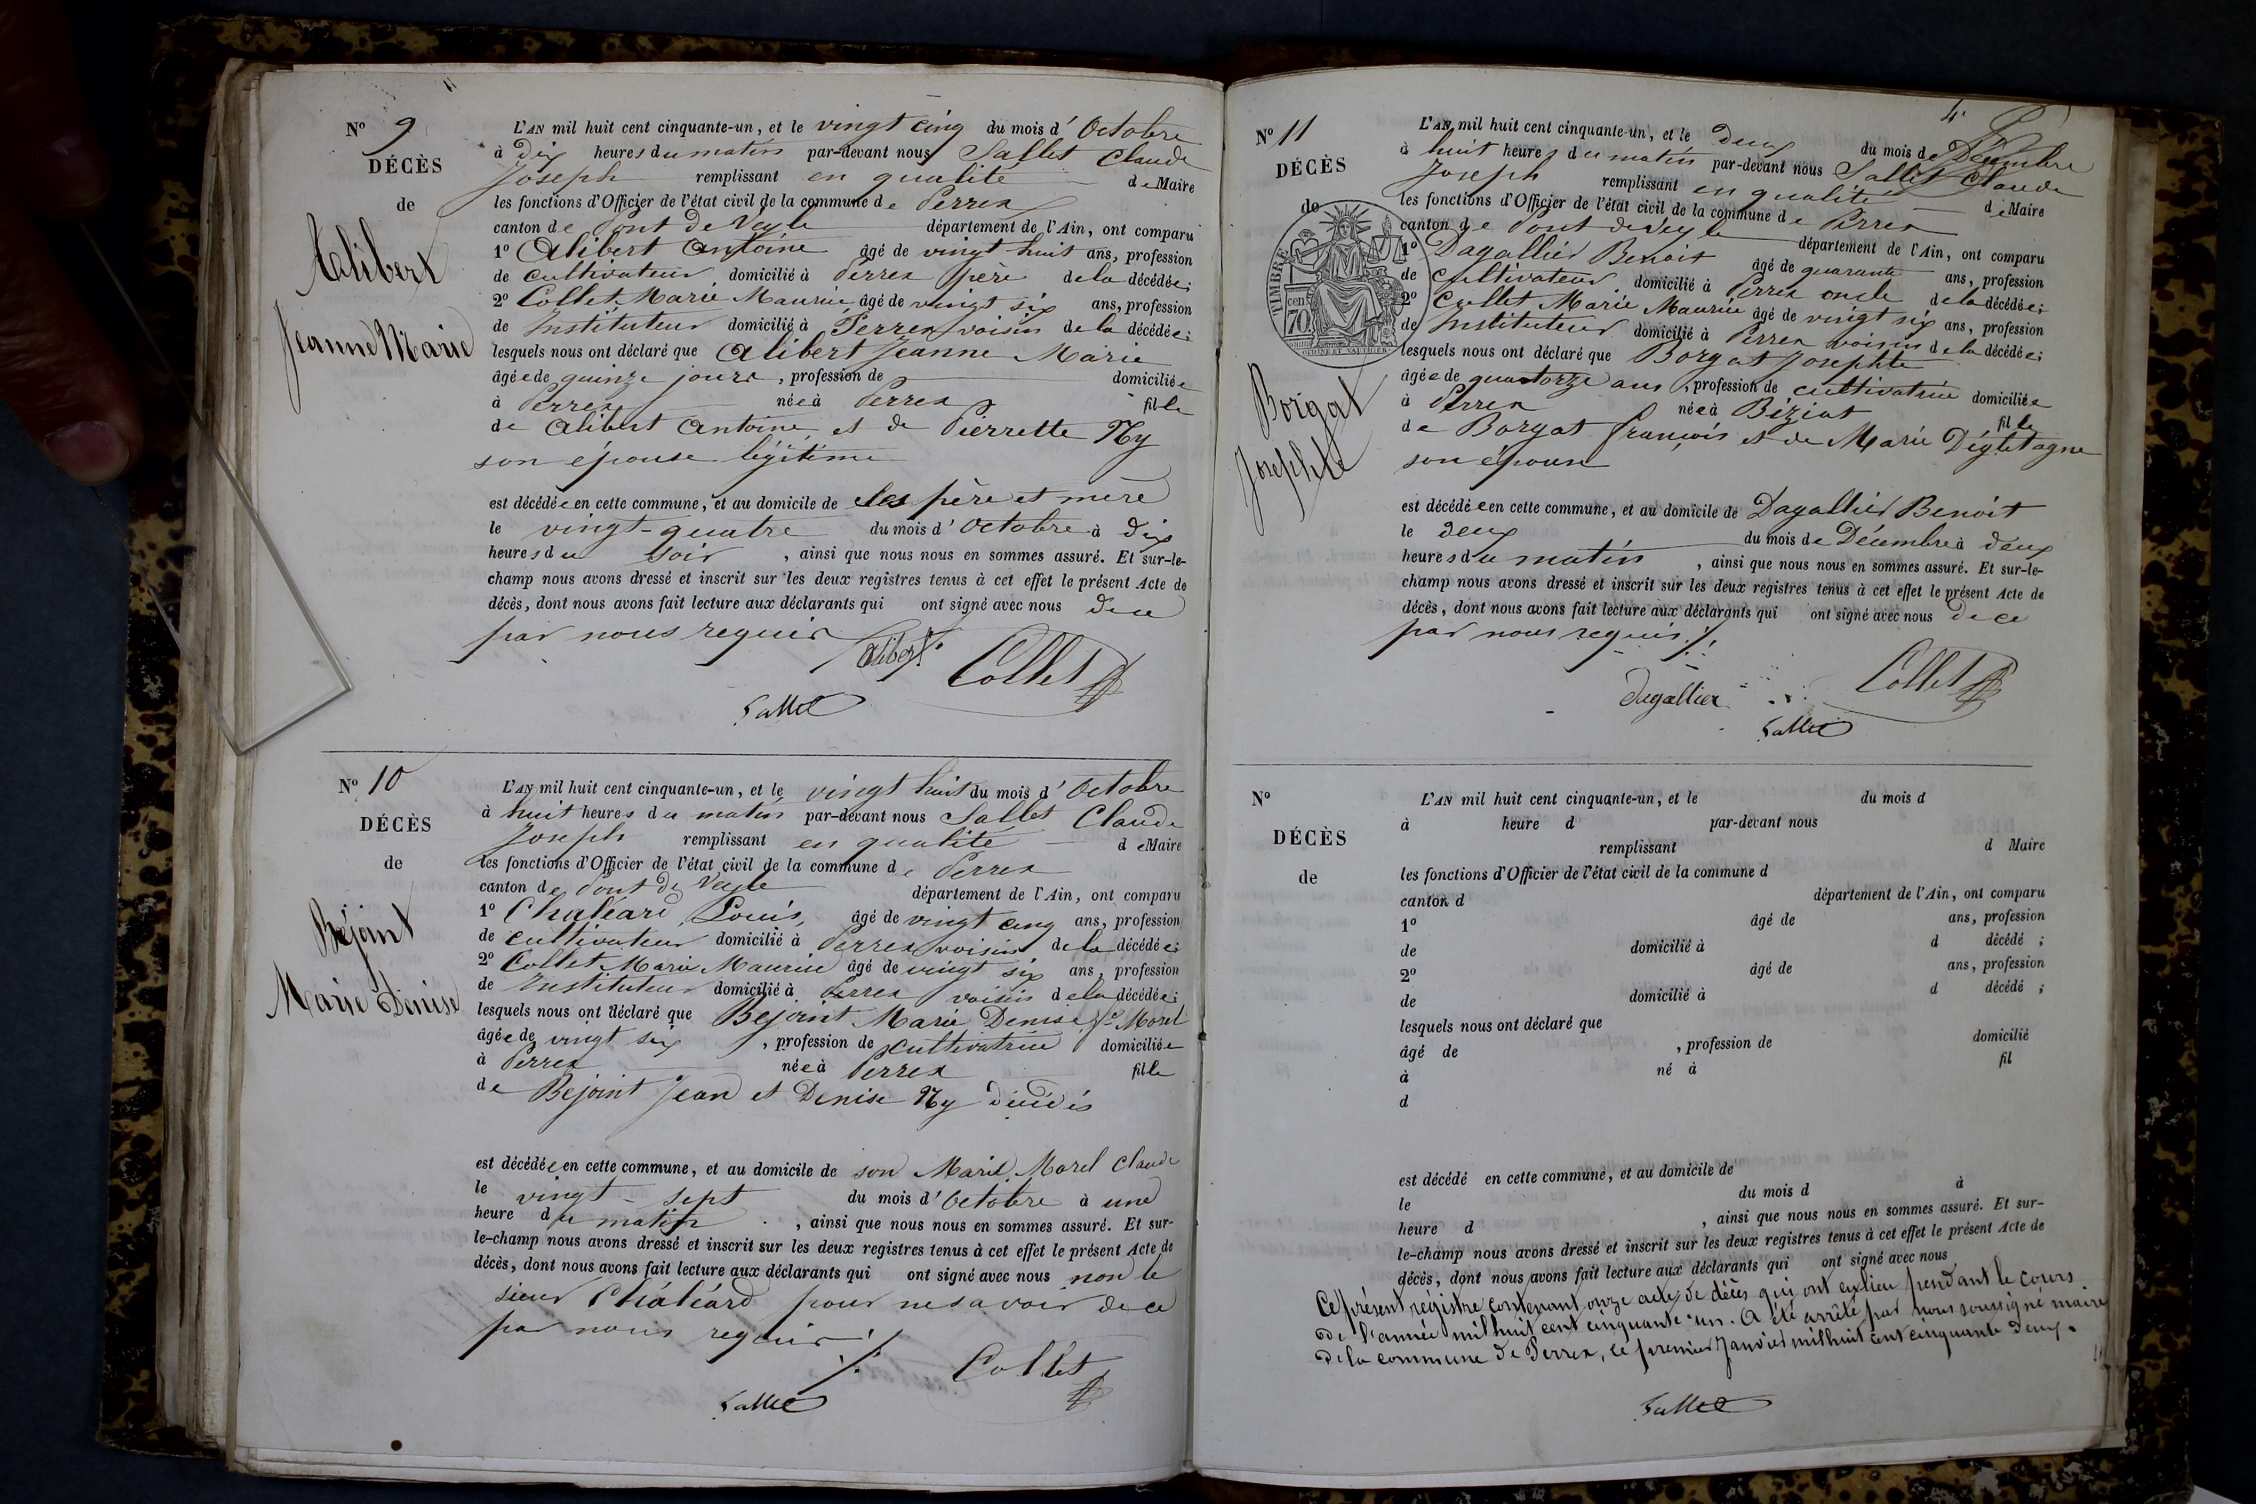 Nº 9
DÉCÈS
de
Alibert
Jeanne Marie
L'AN mil huit cent cinquante-un, et le vingt cinq du mois d' Octobre
à dix heures du matin par-devant nous Sallet Claude
Joseph remplissant en qualité de Maire
les fonctions d'Officier de l'état civil de la commune de Perrex
canton de Pont de Veyle département de l'Ain, ont comparu
1º Alibert Antoine âgé de vingt huit ans, profession
de cultivateur domicilié à Perrex père de la décédée;
2º Collet Marie Maurice âgé de vingt six ans, profession
de Instituteur domicilié à Perrex voisin de la décédée;
lesquels nous ont déclaré que Alibert Jeanne Marie
âgée de quinze jours, profession de domiciliée
à Perrex née à Perrex fille
de Alibert Antoine et de Pierrette Ny
son épouse légitime
est décédée en cette commune, et au domicile de ses père et mère
le vingt-quatre du mois d' Octobre à dix
heures du soir, ainsi que nous nous en sommes assuré. Et sur-le-
champ nous avons dressé et inscrit sur les deux registres tenus à cet effet le présent Acte de
décès, dont nous avons fait lecture aux déclarants qui ont signé avec nous de ce
par nous requis
Alibert Collet
Sallet
Nº 10
DÉCÈS
de
Béjoint
Marie Denise
L'AN mil huit cent cinquante-un, et le vingt huit du mois d' Octobre
à huit heures du matin par-devant nous Sallet Claude
Joseph remplissant en qualité de Maire
les fonctions d'Officier de l'état civil de la commune de Perrex
canton de Pont de Veyle département de l'Ain, ont comparu
1º Chaléard Louis, âgé de vingt cinq ans, profession
de cultivateur domicilié à Perrex voisin de la décédée;
2º Collet Marie Maurice âgé de vingt six ans, profession
de Instituteur domicilié à Perrex voisin de la décédée;
lesquels nous ont déclaré que Bejoint Marie Denise fe Morel
âgée de vingt six, profession de cultivatrice domiciliée
à Perrex née à Perrex fille
de Bejoint Jean et Denise Ny décédés
est décédée en cette commune, et au domicile de son Marié Morel Claude
le vingt-sept du mois d' Octobre à une
heure du matin, ainsi que nous nous en sommes assuré. Et sur-
le-champ nous avons dressé et inscrit sur les deux registres tenus à cet effet le présent Acte de
décès, dont nous avons fait lecture aux déclarants qui ont signé avec nous non le
sieur Chaléard pour ne savoir de ce
par nous requis ./.
Collet
Sallet
4.
Nº 11
DÉCÈS
de
TIMBRE
70 cen
Borgat
Josephte
L'AN mil huit cent cinquante-un, et le deux du mois de Décembre
à huit heures du matin par-devant nous Sallet Claude
Joseph remplissant en qualité de Maire
les fonctions d'Officier de l'état civil de la commune de Perrex
canton de Pont de Veyle département de l'Ain, ont comparu
1º Dagallier Benoit âgé de quarante ans, profession
de cultivateur domicilié à Perrex oncle de la décédée;
2º Collet Marie Maurice âgé de vingt six ans, profession
de Instituteur domicilié à Perrex voisin de la décédée;
lesquels nous ont déclaré que Borgat Josephte
âgée de quatorze ans, profession de cultivatrice domiciliée
à Perrex née à Béziat fille
de Borgat françois et de Marie Dégletagne
son épouse
est décédée en cette commune, et au domicile de Dagallier Benoit
le deux du mois de Décembre à deux
heures du matin, ainsi que nous nous en sommes assuré. Et sur-le-
champ nous avons dressé et inscrit sur les deux registres tenus à cet effet le présent Acte de
décès, dont nous avons fait lecture aux déclarants qui ont signé avec nous de ce
par nous requis ./.
Dagallier Collet
Sallet
Nº
DÉCÈS
de
L'AN mil huit cent cinquante-un, et le du mois d
à heure d par-devant nous
remplissant d Maire
les fonctions d'Officier de l'état civil de la commune d
canton d département de l'Ain, ont comparu
1º âgé de ans, profession
de domicilié à d décédé ;
2º âgé de ans, profession
de domicilié à d décédé ;
lesquels nous ont déclaré que
âgé de , profession de domicilié
à né à fil
d
est décédé en cette commune, et au domicile de
le du mois d à
heure d , ainsi que nous nous en sommes assuré. Et sur-
le-champ nous avons dressé et inscrit sur les deux registres tenus à cet effet le présent Acte de
décès, dont nous avons fait lecture aux déclarants qui ont signé avec nous
Ce présent régistre contenant onze actes de décès qui ont eu lieu pendant le cours
de l'année mil huit cent cinquante-un. A été arrêté par nous soussigné maire
de la commune de Perrex, le premier Janvier mil huit cent cinquante deux.
Sallet